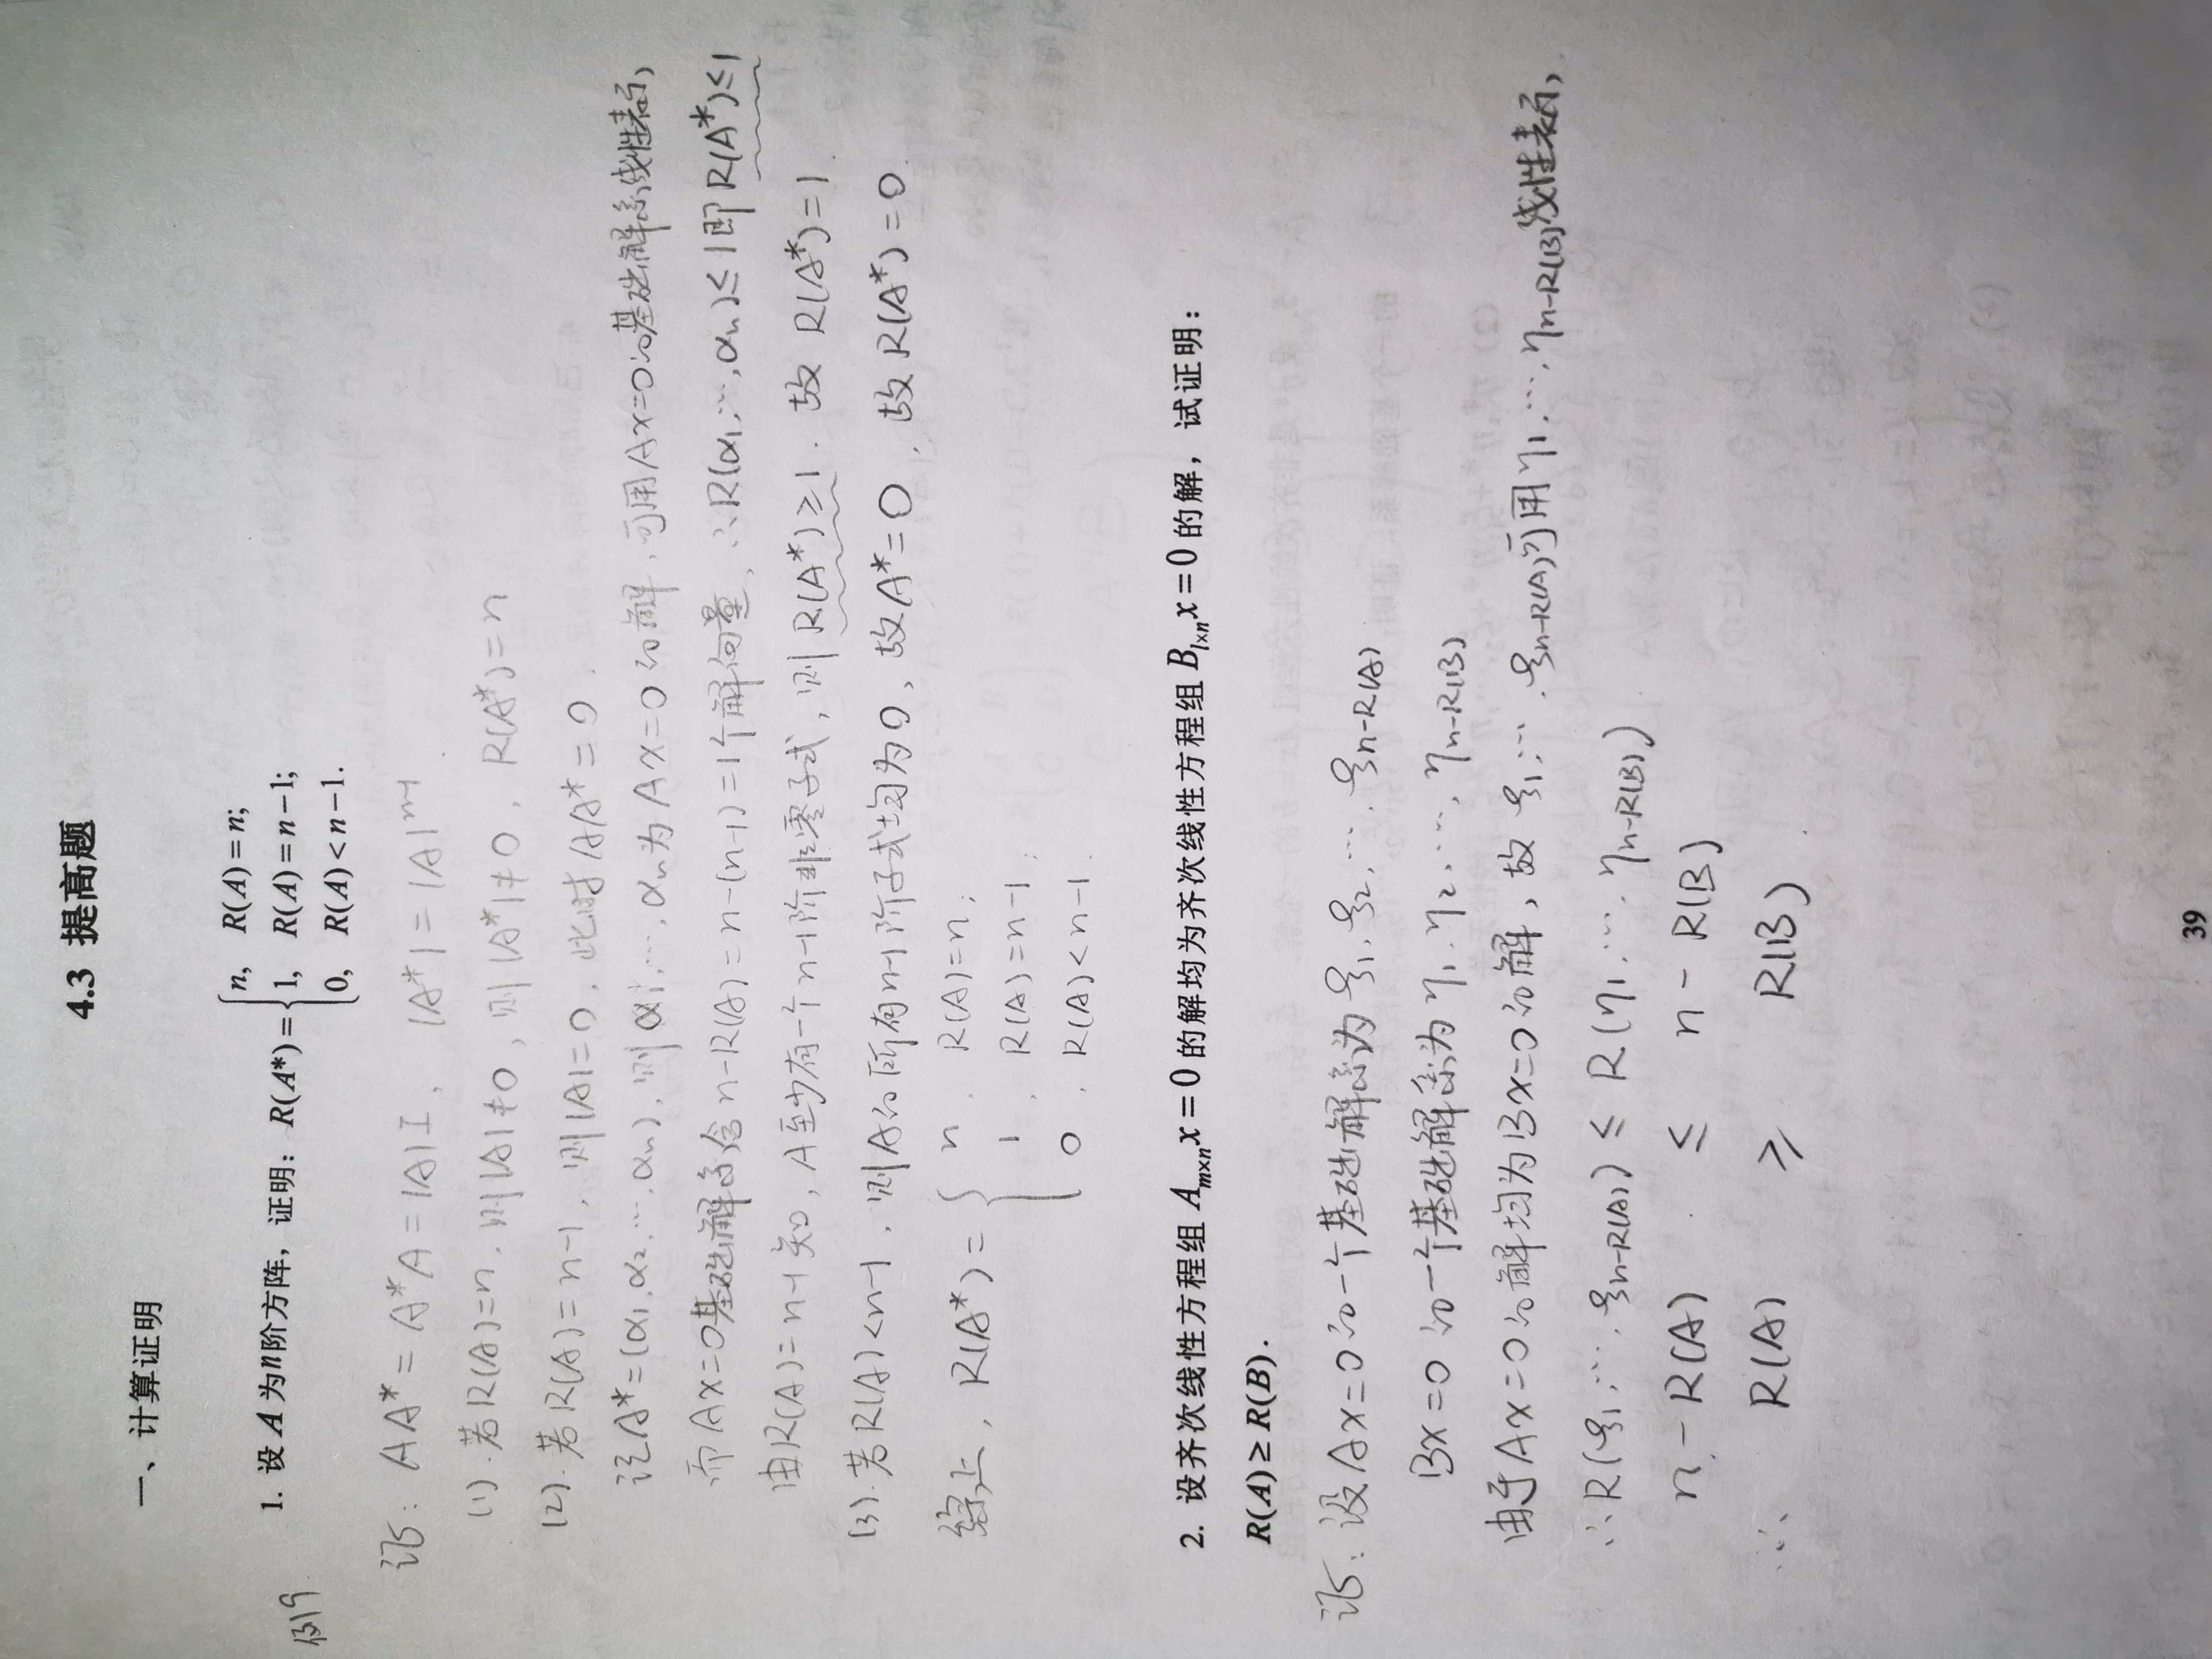 4.3 提高题
一、计算证明
例9
1. 设 A 为n阶方阵，证明：R(A*)={n, R(A)=n;
1, R(A)=n-1;
0, R(A)<n-1.
证：AA*=A*A=|A|I，|A*|=|A|ⁿ⁻¹.
(1).若R(A)=n，则|A|≠0，则|A*|≠0，R(A*)=n
(2).若R(A)=n-1，则|A|=0，此时AA*=0.
记A*=(α₁,α₂,…,αₙ)，则α₁,…,αₙ为Ax=0的解，可用Ax=0的基础解系线性表示，
而Ax=0基础解系含n-R(A)=n-(n-1)=1个解向量，∴R(α₁,…,αₙ)≤1即R(A*)≤1
由R(A)=n-1知，A至少有一个n-1阶非零子式，则R(A*)≥1. 故R(A*)=1.
(3).若R(A)<n-1，则A的所有n-1阶子式均为0，故A*=0，故R(A*)=0.
综上，R(A*)={n, R(A)=n;
1, R(A)=n-1;
0, R(A)<n-1.
2. 设齐次线性方程组 Aₘ×ₙx=0 的解均为齐次线性方程组 Bₗ×ₙx=0 的解，试证明：
R(A)≥R(B).
证：设Ax=0的一个基础解系为ξ₁,ξ₂,…,ξn-R(A)
Bx=0的一个基础解系为η₁,η₂,…,ηn-R(B)
由于Ax=0的解均为Bx=0的解，故ξ₁,…,ξn-R(A)可用η₁,…,ηn-R(B)线性表示，
∴R(ξ₁,…,ξn-R(A))≤R(η₁,…,ηn-R(B))
n-R(A) ≤ n-R(B)
∴ R(A) ≥ R(B).
39